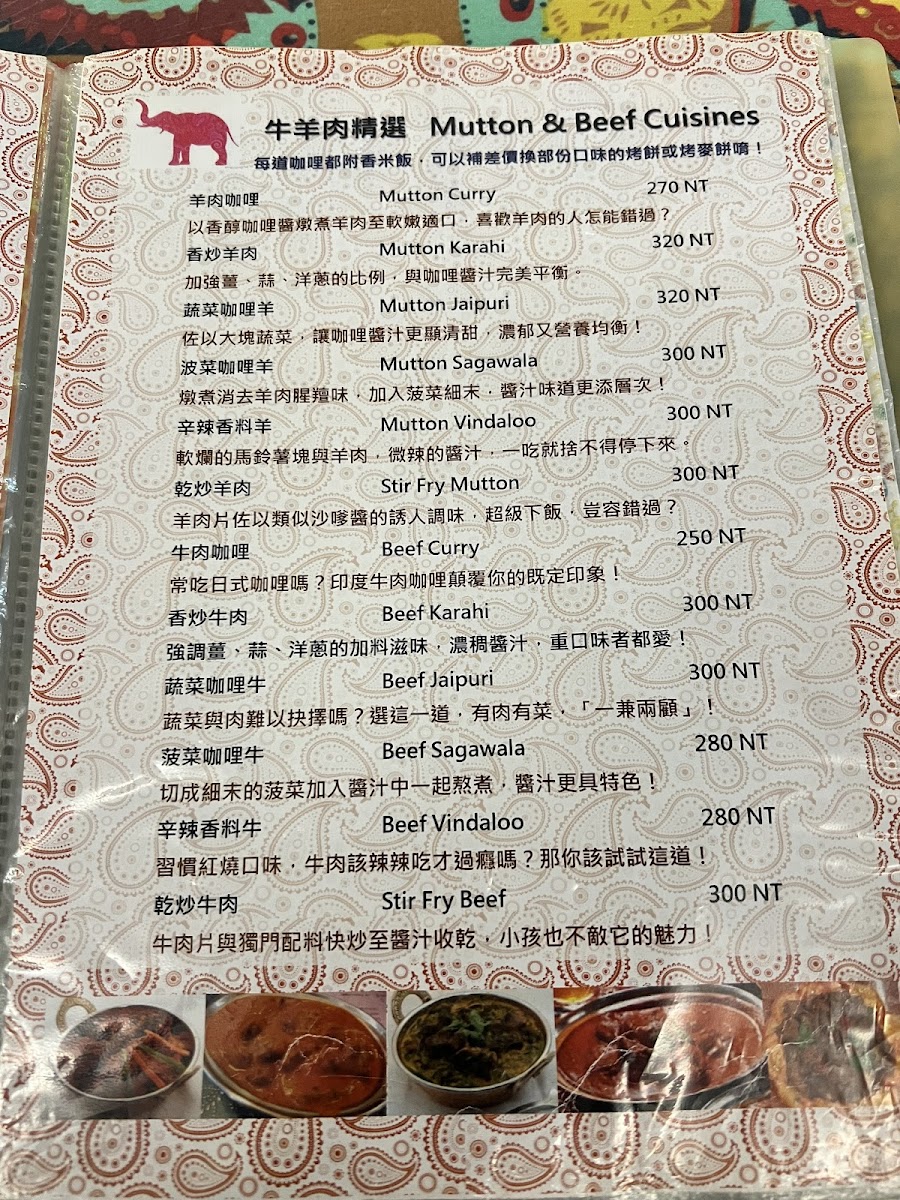 牛羊肉精選 Mutton & Beef Cuisines
每道咖哩都附香米飯，可以補差價換部份口味的烤餅或烤麥餅唷！
羊肉咖哩 Mutton Curry 270 NT
以香醇咖哩醬燉煮羊肉至軟嫩適口，喜歡羊肉的人怎能錯過？
香炒羊肉 Mutton Karahi 320 NT
加強薑、蒜、洋蔥的比例，與咖哩醬汁完美平衡。
蔬菜咖哩羊 Mutton Jaipuri 320 NT
佐以大塊蔬菜，讓咖哩醬汁更顯清甜，濃郁又營養均衡！
菠菜咖哩羊 Mutton Sagawala 300 NT
燉煮消去羊肉腥羶味，加入菠菜細末，醬汁味道更添層次！
辛辣香料羊 Mutton Vindaloo 300 NT
軟爛的馬鈴薯塊與羊肉，微辣的醬汁，一吃就捨不得停下來。
乾炒羊肉 Stir Fry Mutton 300 NT
羊肉片佐以類似沙嗲醬的誘人調味，超級下飯，豈容錯過？
牛肉咖哩 Beef Curry 250 NT
常吃日式咖哩嗎？印度牛肉咖哩顛覆你的既定印象！
香炒牛肉 Beef Karahi 300 NT
強調薑、蒜、洋蔥的加料滋味，濃稠醬汁，重口味者都愛！
蔬菜咖哩牛 Beef Jaipuri 300 NT
蔬菜與肉難以抉擇嗎？選這一道，有肉有菜，「一兼兩顧」！
菠菜咖哩牛 Beef Sagawala 280 NT
切成細末的菠菜加入醬汁中一起熬煮，醬汁更具特色！
辛辣香料牛 Beef Vindaloo 280 NT
習慣紅燒口味，牛肉該辣辣吃才過癮嗎？那你該試試這道！
乾炒牛肉 Stir Fry Beef 300 NT
牛肉片與獨門配料快炒至醬汁收乾，小孩也不敵它的魅力！